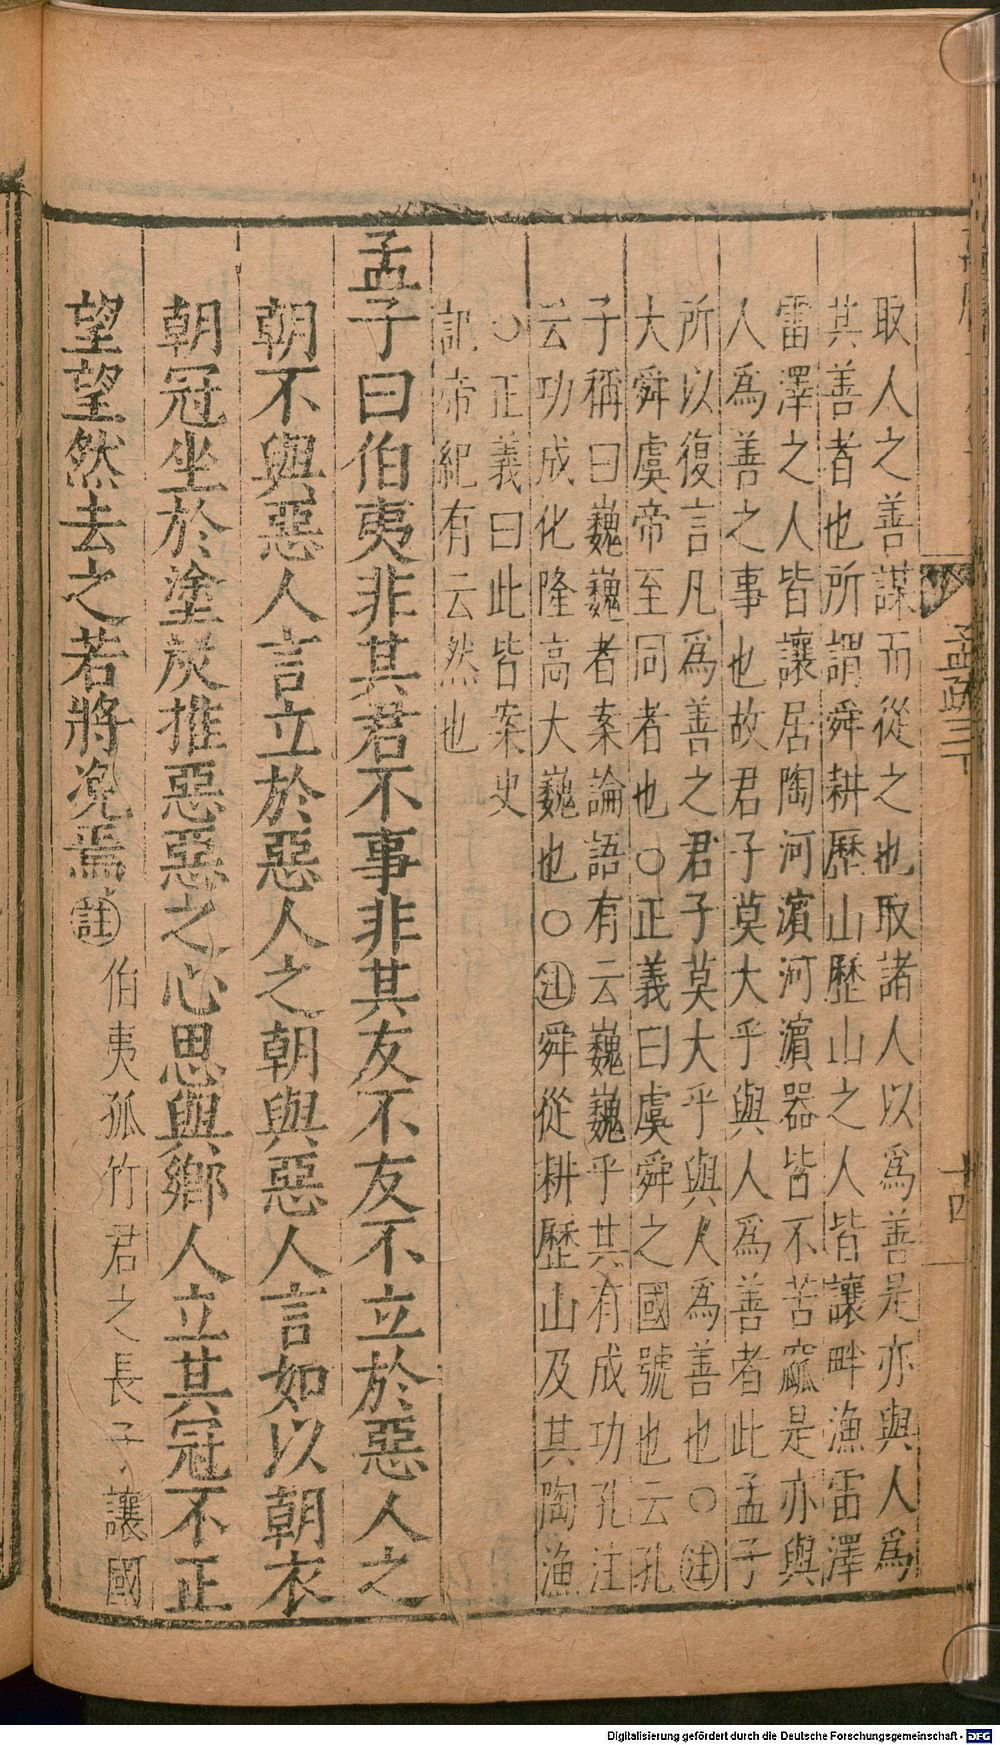 取人之善謀而從之也取諸人以爲善是亦與人爲
其善者也所謂舜耕歷山歷山之人皆讓畔漁雷澤
雷澤之人皆讓居陶河濱河濱器皆不苦窳是亦與
人爲善之事也故君子莫大乎與人爲善者此孟子
所以復言凡爲善之君子莫大乎與人爲善也○注
大舜虞帝至同者也○正義曰虞舜之國號也云孔
子稱曰巍巍者案論語有云巍巍乎其有成功孔注
云功成化隆高大巍也○注舜從耕歷山及其陶漁
○正義曰此皆案史
記帝紀有云然也
孟子曰伯夷非其君不事非其友不友不立於惡人之
朝不與惡人言立於惡人之朝與惡人言如以朝衣
朝冠坐於塗炭推惡惡之心思與鄉人立其冠不正
望望然去之若將凂焉註伯夷孤竹君之長子讓國
孟疏三下
十四
Digitalisierung gefördert durch die Deutsche Forschungsgemeinschaft - DFG